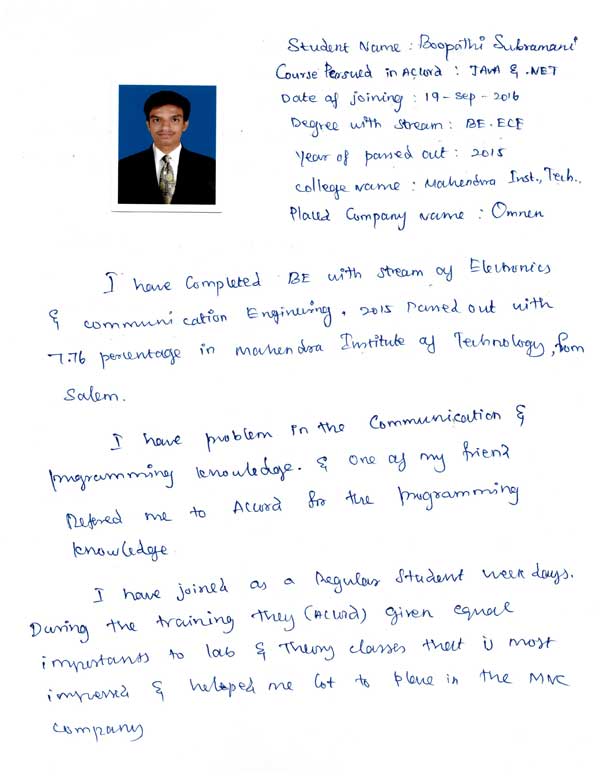 Student Name : Boopathi Subramani
Course Persued in Accord : JAVA & .NET
Date of joining : 19 - Sep - 2016
Degree with Stream : BE. ECE
Year of passed out : 2015
College Name : Mahendra Inst., Tech..
Placed Company Name :
I have Completed BE with stream of Electronics
& communication Enginering. 2015 Passed out with
7.76 percentage in Mahendra Institute of Technology, from
Salem.
I have problem in the Communication &
programming knowledge. & One of my friend
Refered me to Accord for the programming
knowledge
I have joined as a Regular Student week days.
During the training they (Accord) given equal
importants to lab & Theory classes that is most
impressed & helped me lot to place in the MNC
company